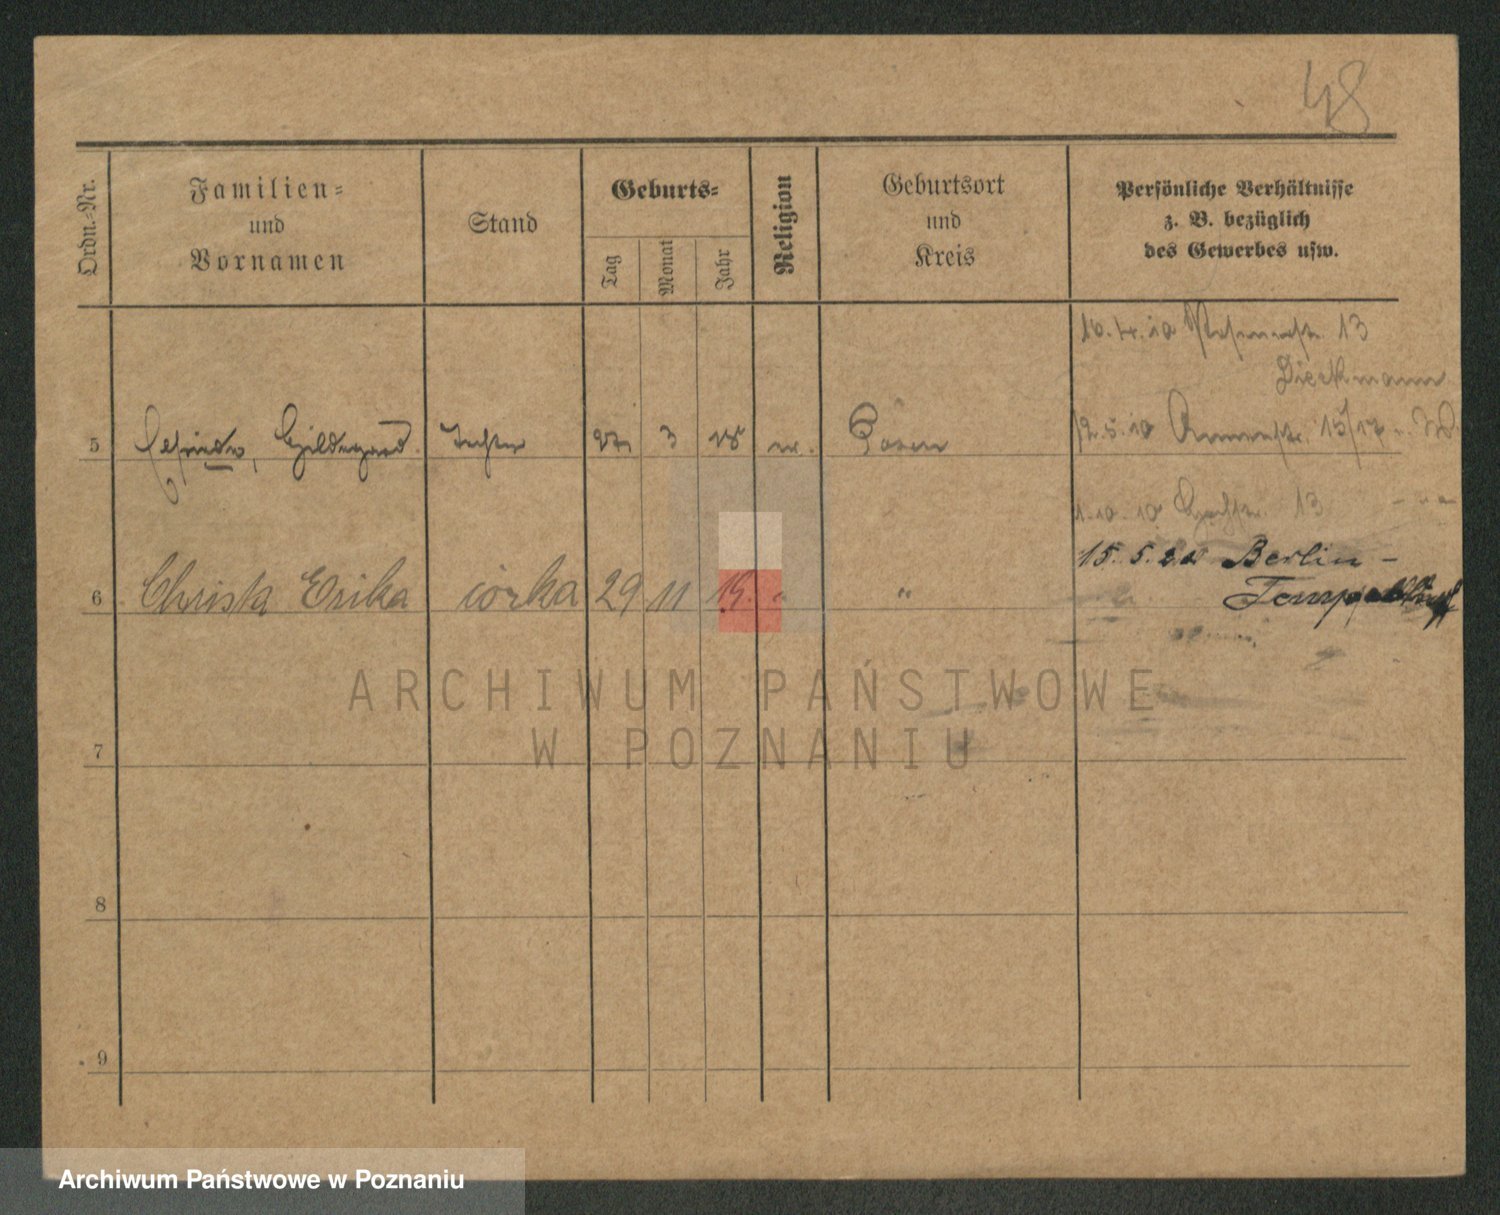 48
Ordn.-Nr.
Familien-
und
Vornamen
Stand
Geburts-
Tag
Monat
Jahr
Religion
Geburtsort
und
Kreis
Persönliche Verhältnisse
z. B. bezüglich
des Gewerbes usw.
13
Dieckmann
5 Elfriede, Hildegard. Tochter 27. 3 18 ev. Posen
15/17
1.10.10 13
15. 5. 20 Berlin -
6 Christa Erika córka 29 11 19. " "
Tempelhof
ARCHIWUM PAŃSTWOWE
W POZNANIU
7
8
9
Archiwum Państwowe w Poznaniu